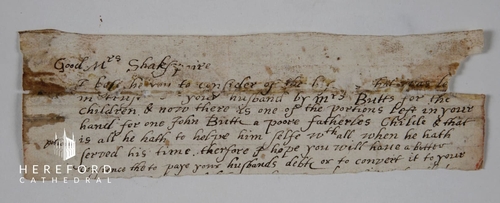 Good Mrs Shakspaire
I
to consider of the
in trust your husband by mrs Butts for the
children & now there is one of the portions left in your
hand for one John Butts a poore fatherles Childe & that
is all he hath to helpe him selfe wthall when he hath
served his time, therfore I hope you will have a better
the to paye your husbands debts or to convert it to your
HEREFORD
CATHEDRAL